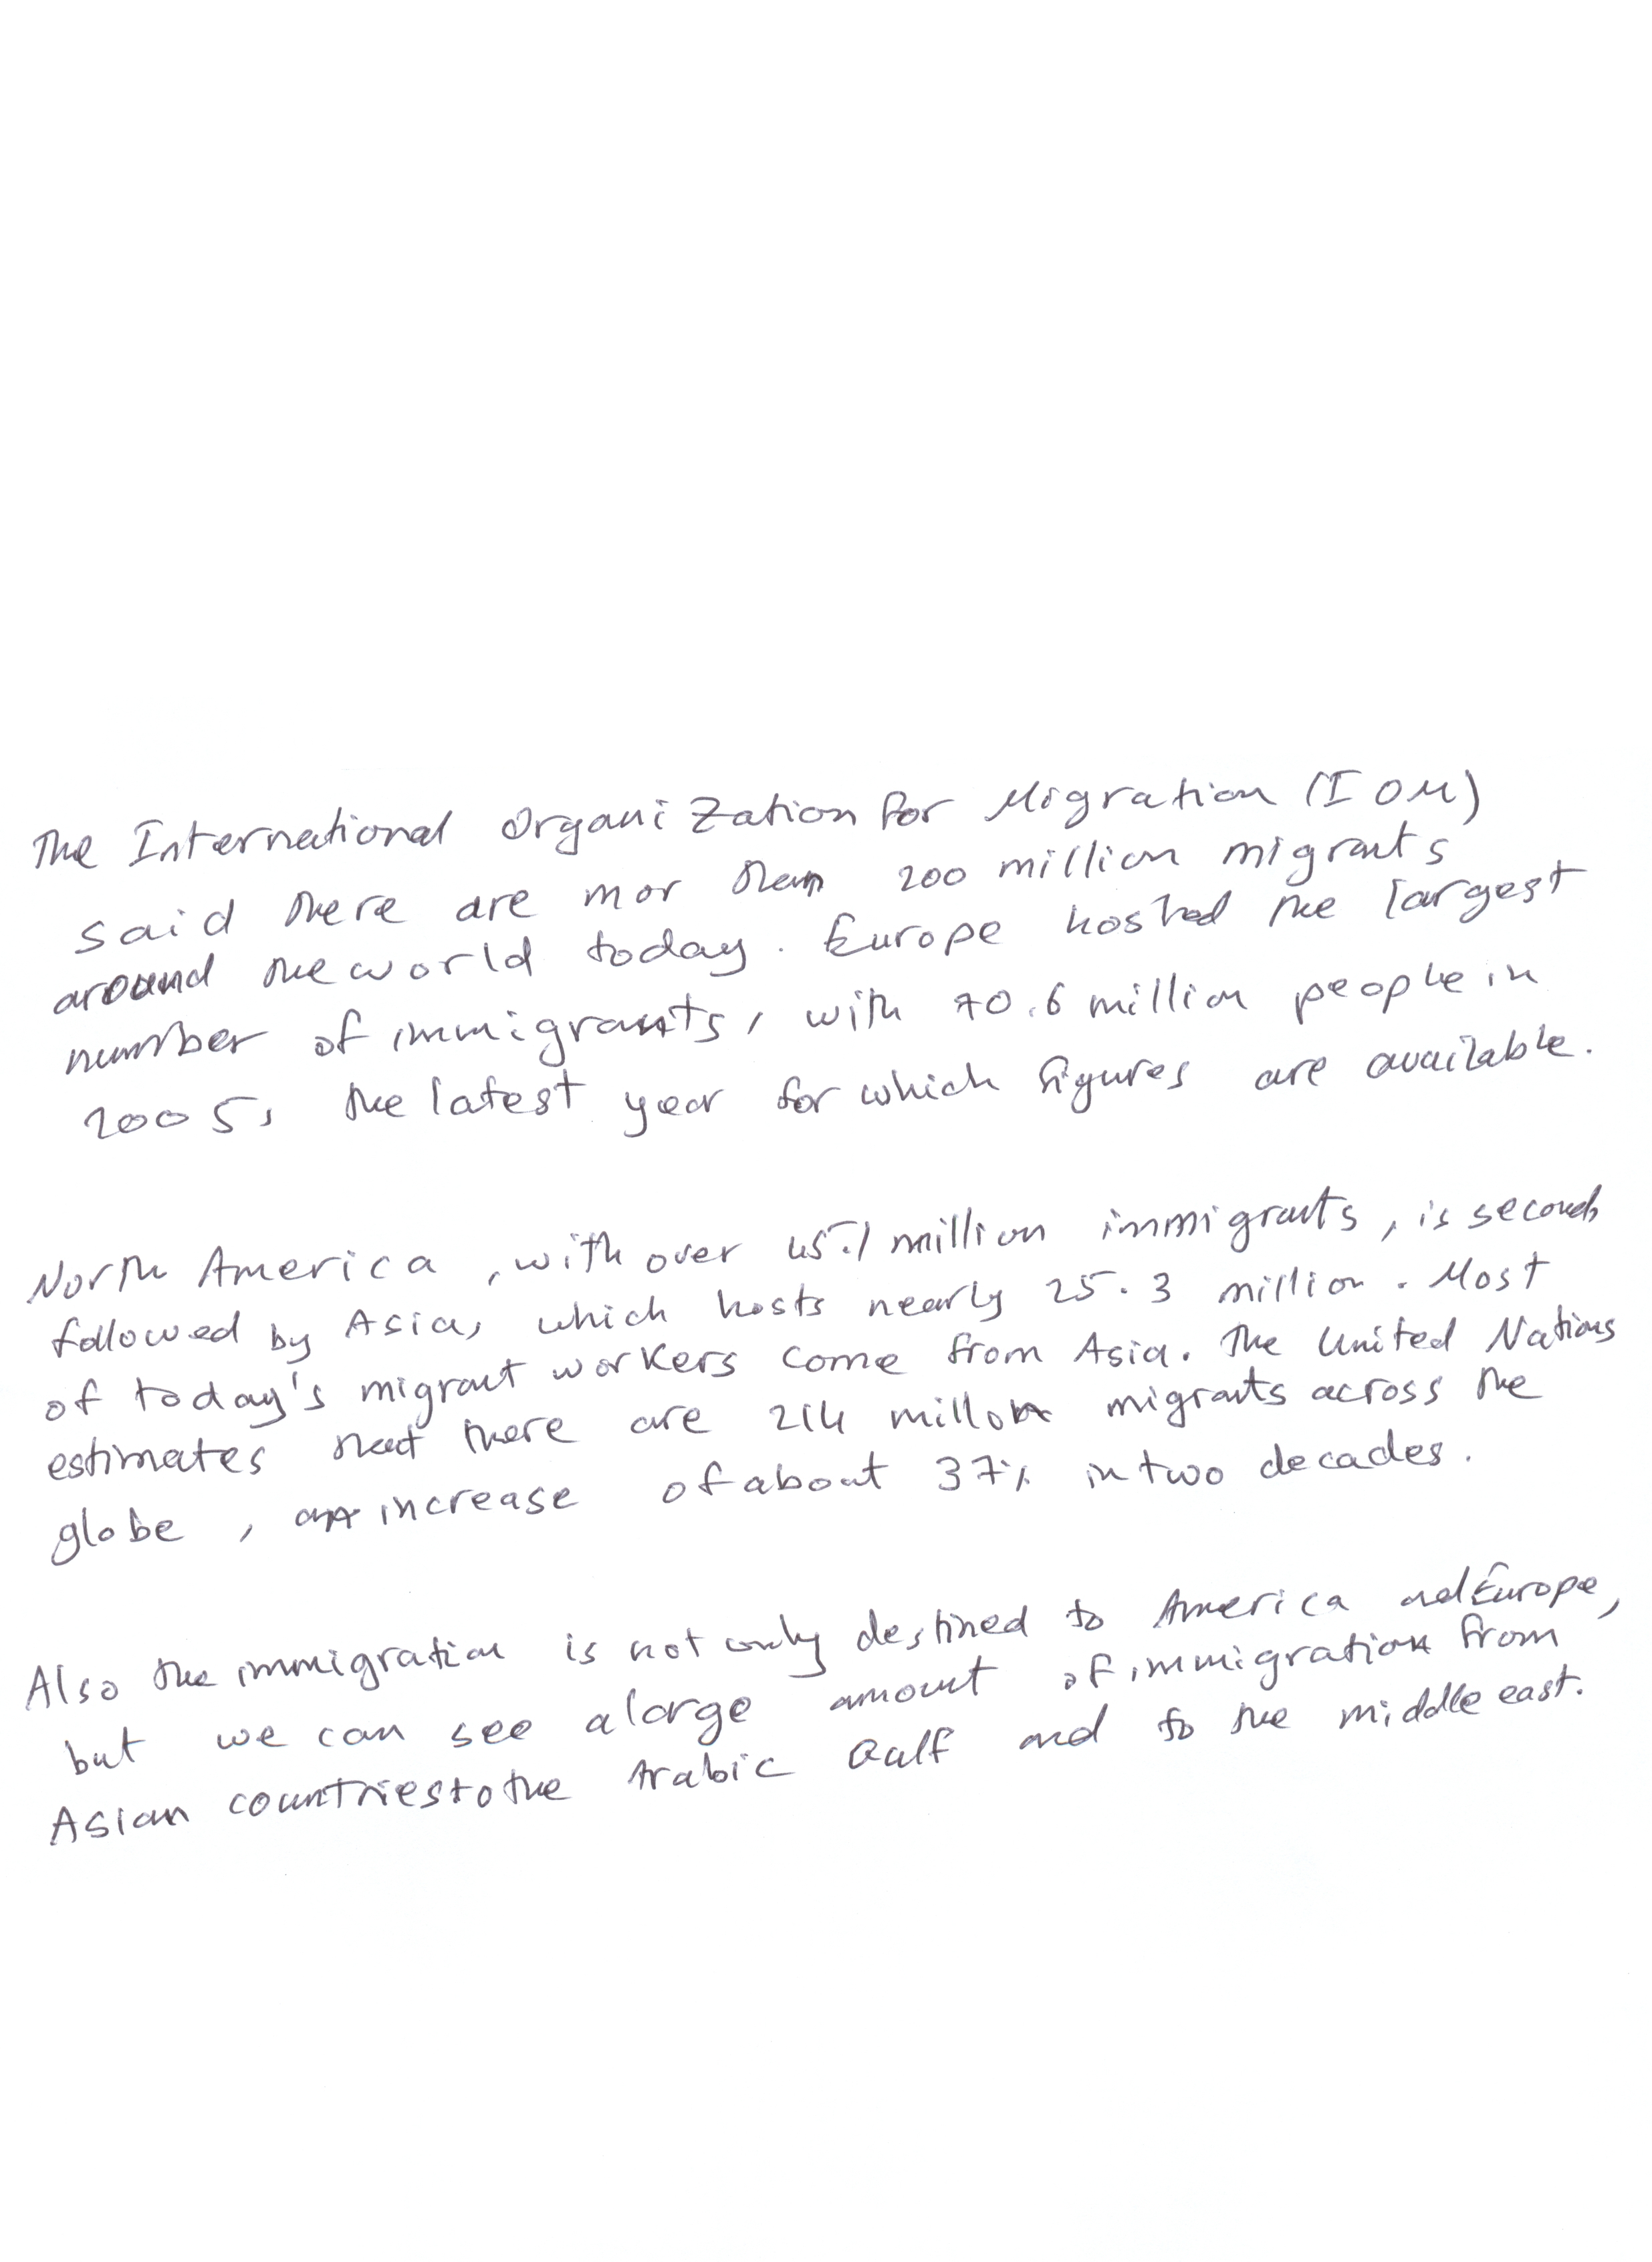 The International Organization for Migration (IOM)
said there are mor than 200 million migrants
around the world today. Europe hosted the largest
number of immigrants, with 70.6 million people in
2005, the latest year for which figures are available.
North America, with over 45.1 million immigrants, is second
followed by Asia, which hosts nearly 25.3 million. Most
of today's migrant workers come from Asia. The United Nations
estimates that there are 214 millon migrants across the
globe, an increase of about 37% in two decades.
Also the immigration is not only destined to America and Europe,
but we can see a large amount of immigration from
Asian countries to the Arabic Gulf and to the middle east.